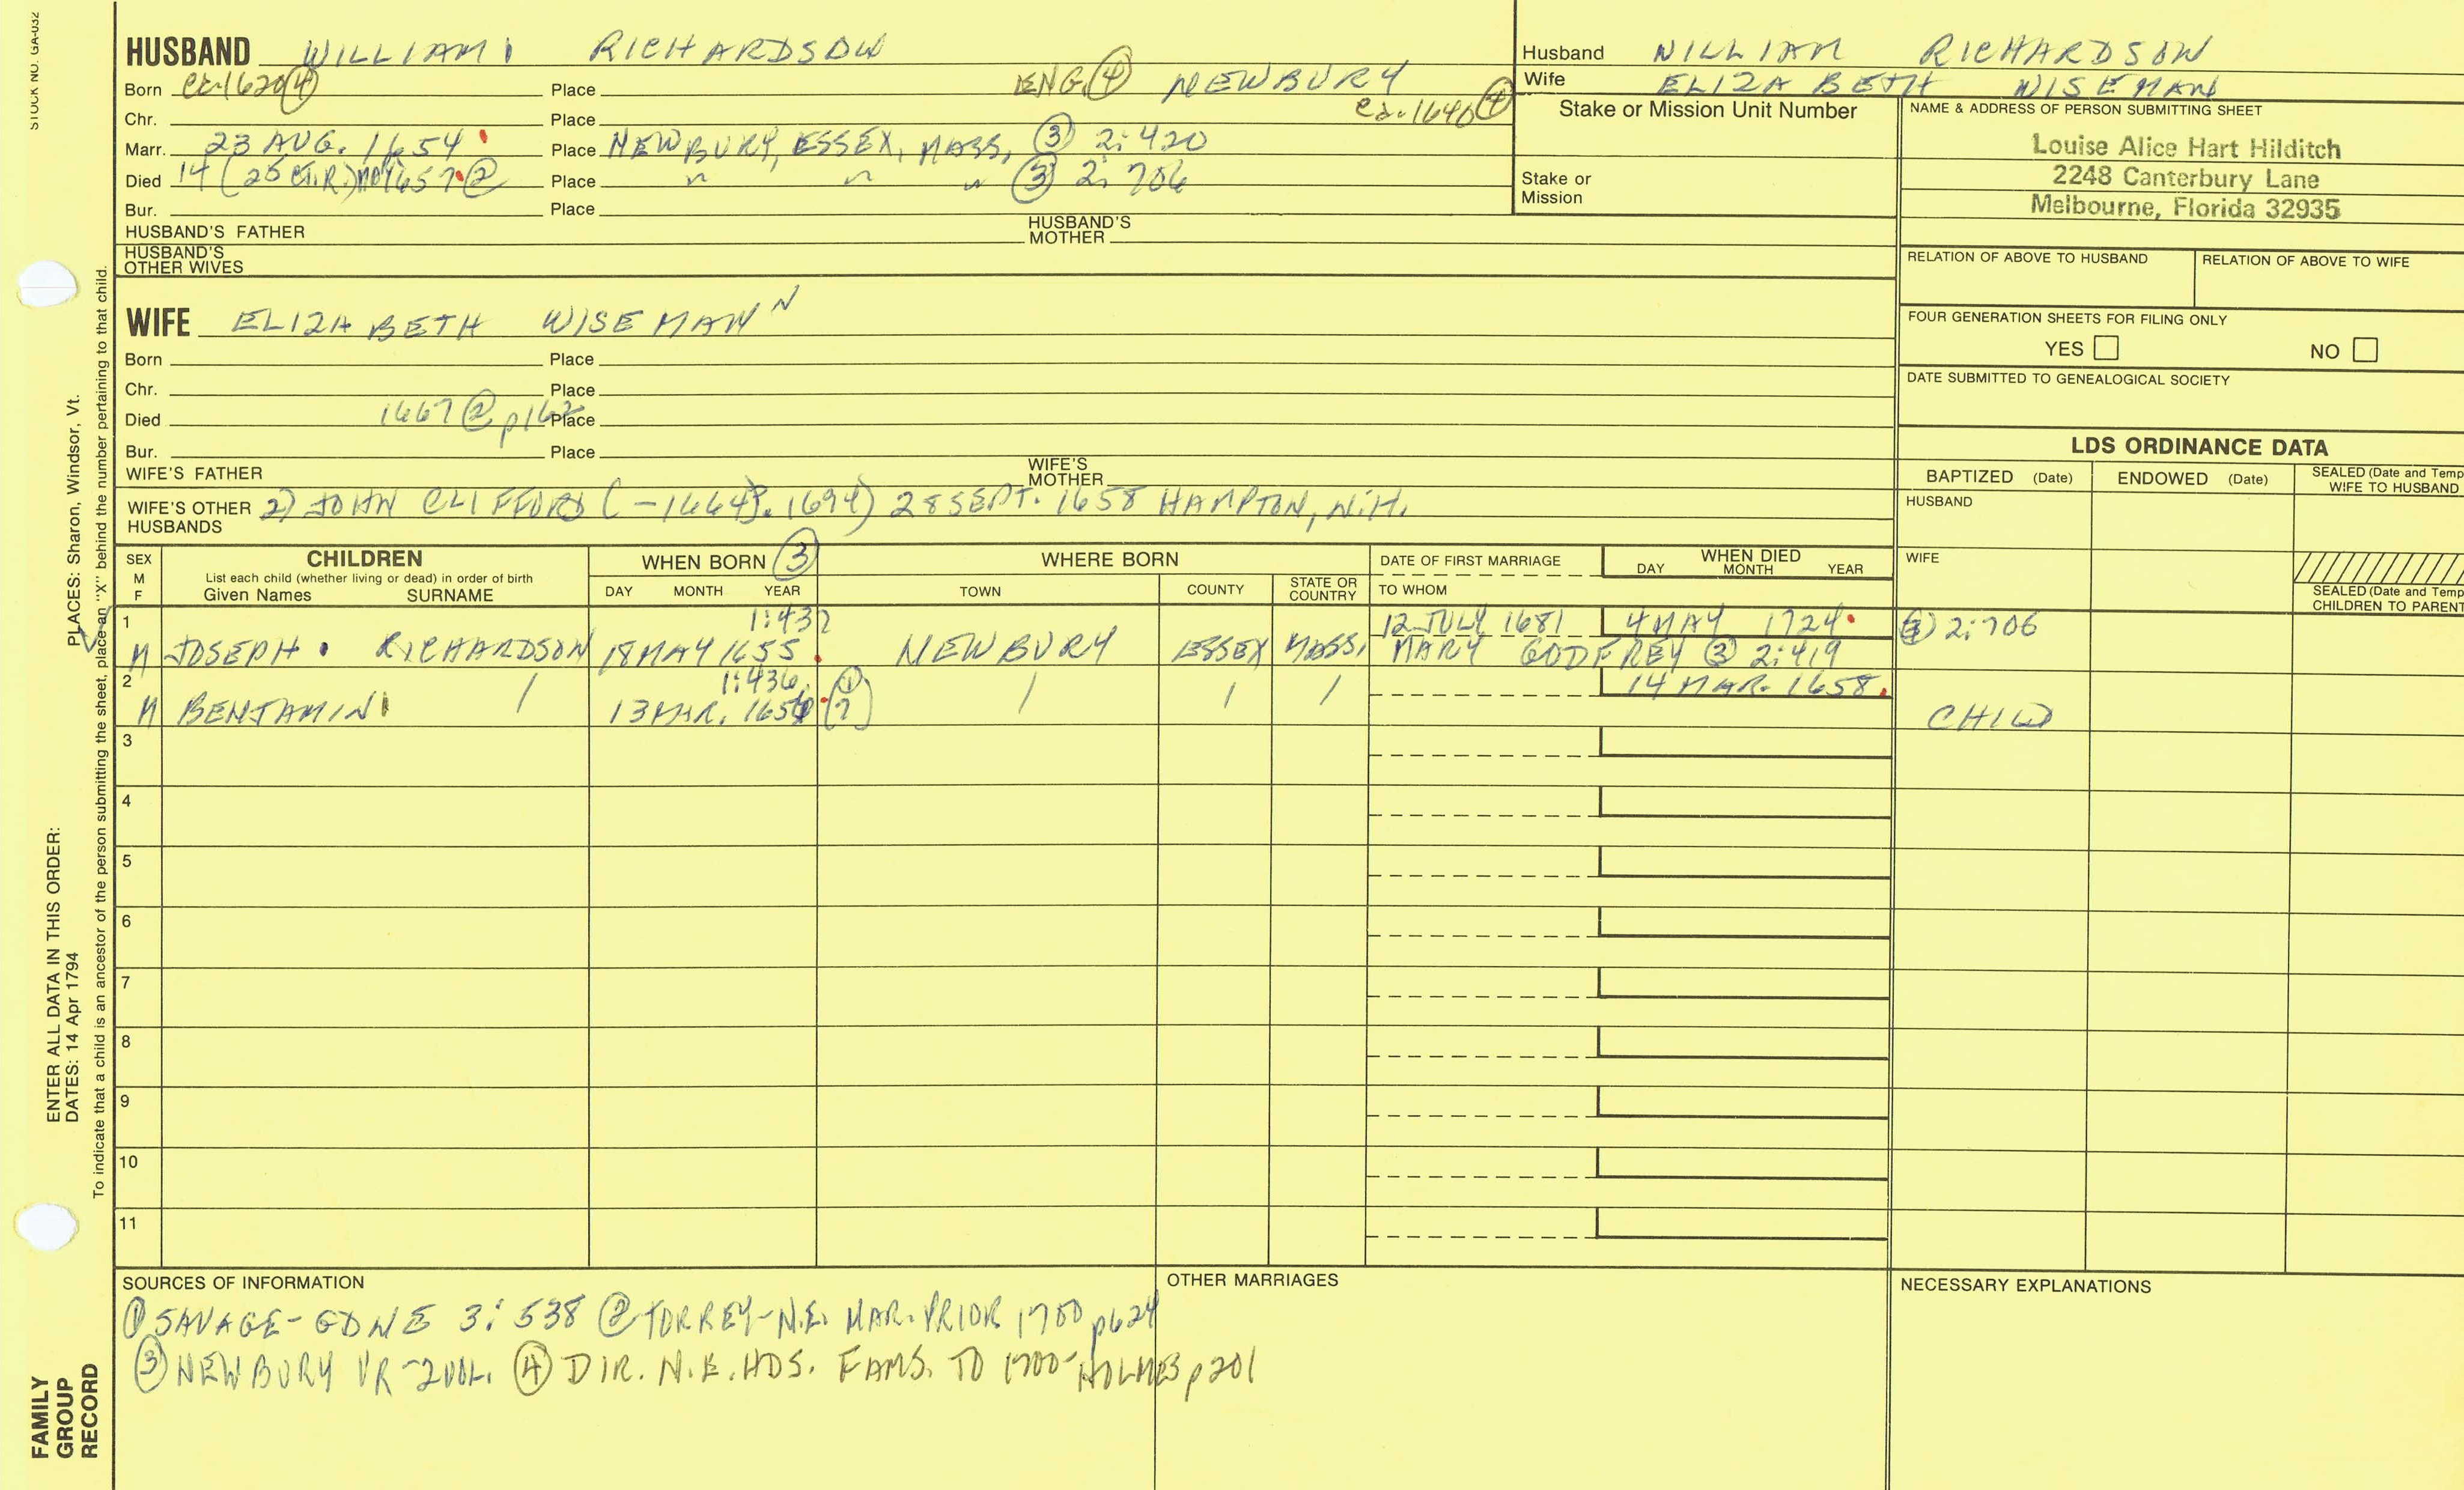 STOCK NO. GA-032
HUSBAND WILLIAM RICHARDSON
Born ca 1620 ④ Place ENG. ④ NEWBURY ca. 1640 ④
Chr. Place
Marr. 23 AUG. 1654 Place NEWBURY, ESSEX, MASS, ③ 2:420
Died 14 (25 CT.R.) 1657 ② Place " " " ③ 2:706
Bur. Place
HUSBAND'S FATHER HUSBAND'S MOTHER
HUSBAND'S OTHER WIVES
Husband WILLIAM RICHARDSON
Wife ELIZABETH WISEMAN
Stake or Mission Unit Number
Stake or
Mission
NAME & ADDRESS OF PERSON SUBMITTING SHEET
Louise Alice Hart Hilditch
2248 Canterbury Lane
Melbourne, Florida 32935
RELATION OF ABOVE TO HUSBAND RELATION OF ABOVE TO WIFE
FOUR GENERATION SHEETS FOR FILING ONLY
YES NO
DATE SUBMITTED TO GENEALOGICAL SOCIETY
WIFE ELIZABETH WISEMANN
Born Place
Chr. Place
Died 1667 ② p162 Place
Bur. Place
WIFE'S FATHER WIFE'S MOTHER
WIFE'S OTHER HUSBANDS 2) JOHN CLIFFORD 28 SEPT. 1658 HAMPTON, N.H.
LDS ORDINANCE DATA
BAPTIZED (Date) ENDOWED (Date) SEALED (Date and Temp
WIFE TO HUSBAND
HUSBAND
WIFE
SEALED (Date and Temp
CHILDREN TO PARENT
SEX M F
CHILDREN
List each child (whether living or dead) in order of birth
Given Names SURNAME
WHEN BORN ③
DAY MONTH YEAR
WHERE BORN
TOWN COUNTY STATE OR COUNTRY
DATE OF FIRST MARRIAGE
TO WHOM
WHEN DIED
DAY MONTH YEAR
1 1:437 12 JULY 1681 4 MAY 1724 ③ 2:706
M JOSEPH RICHARDSON 18 MAY 1655 NEWBURY ESSEX MASS, MARY GODFREY ③ 2:419
2 1:436 ① 14 MAR. 1658
M BENJAMIN / 13 MAR. / / / CHILD
3
4
5
6
7
8
9
10
11
SOURCES OF INFORMATION
① SAVAGE-GDNE 3:538 ② TORREY-N.E. MAR. PRIOR 1700 p624
③ NEWBURY VR-2VOL. ④ DIR. N.E. HDS. FAMS. TO 1700-HOLMES p201
OTHER MARRIAGES
NECESSARY EXPLANATIONS
ENTER ALL DATA IN THIS ORDER:
DATES: 14 Apr 1794
PLACES: Sharon, Windsor, Vt.
To indicate that a child is an ancestor of the person submitting the sheet, place an "X" behind the number pertaining to that child.
FAMILY
GROUP
RECORD